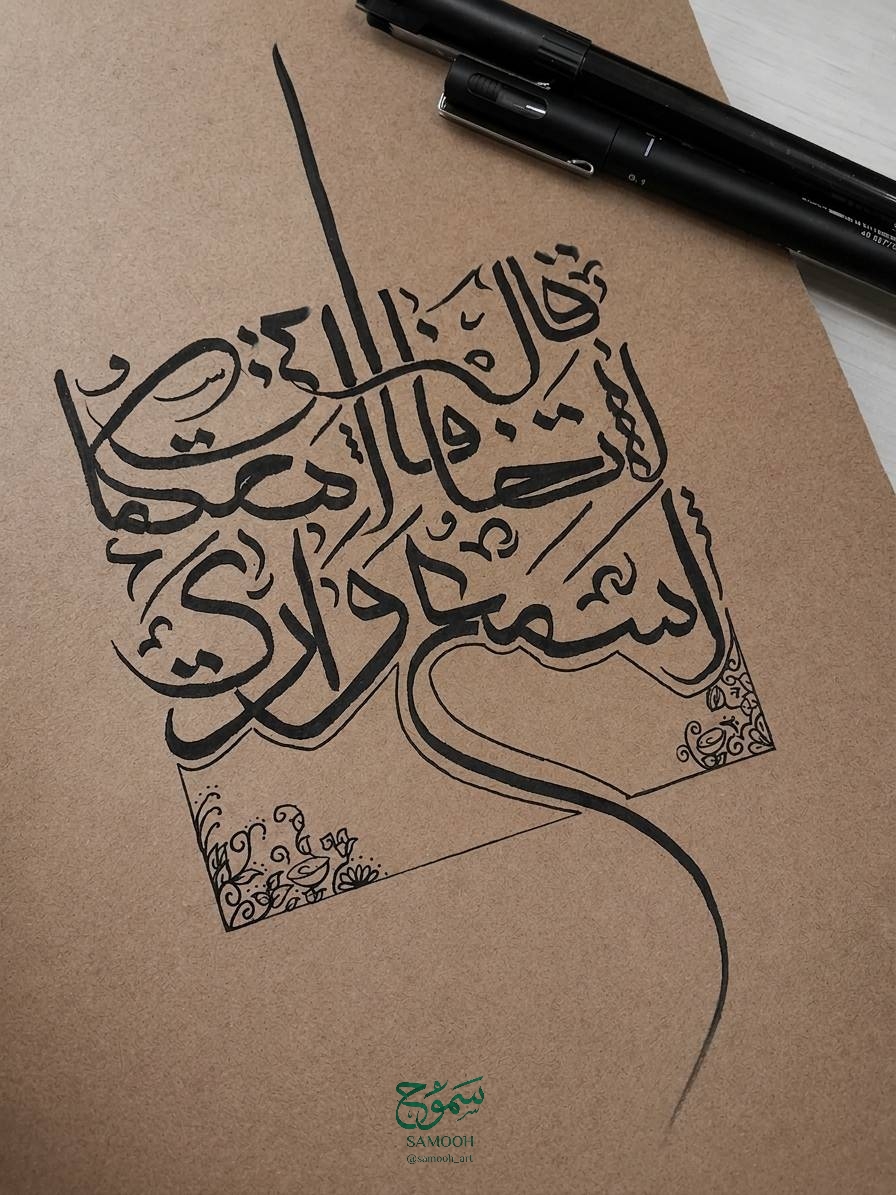 قال
لا تخافا إنني معكما
أسمع وأرى
سموح
SAMOOH
@samooh_art